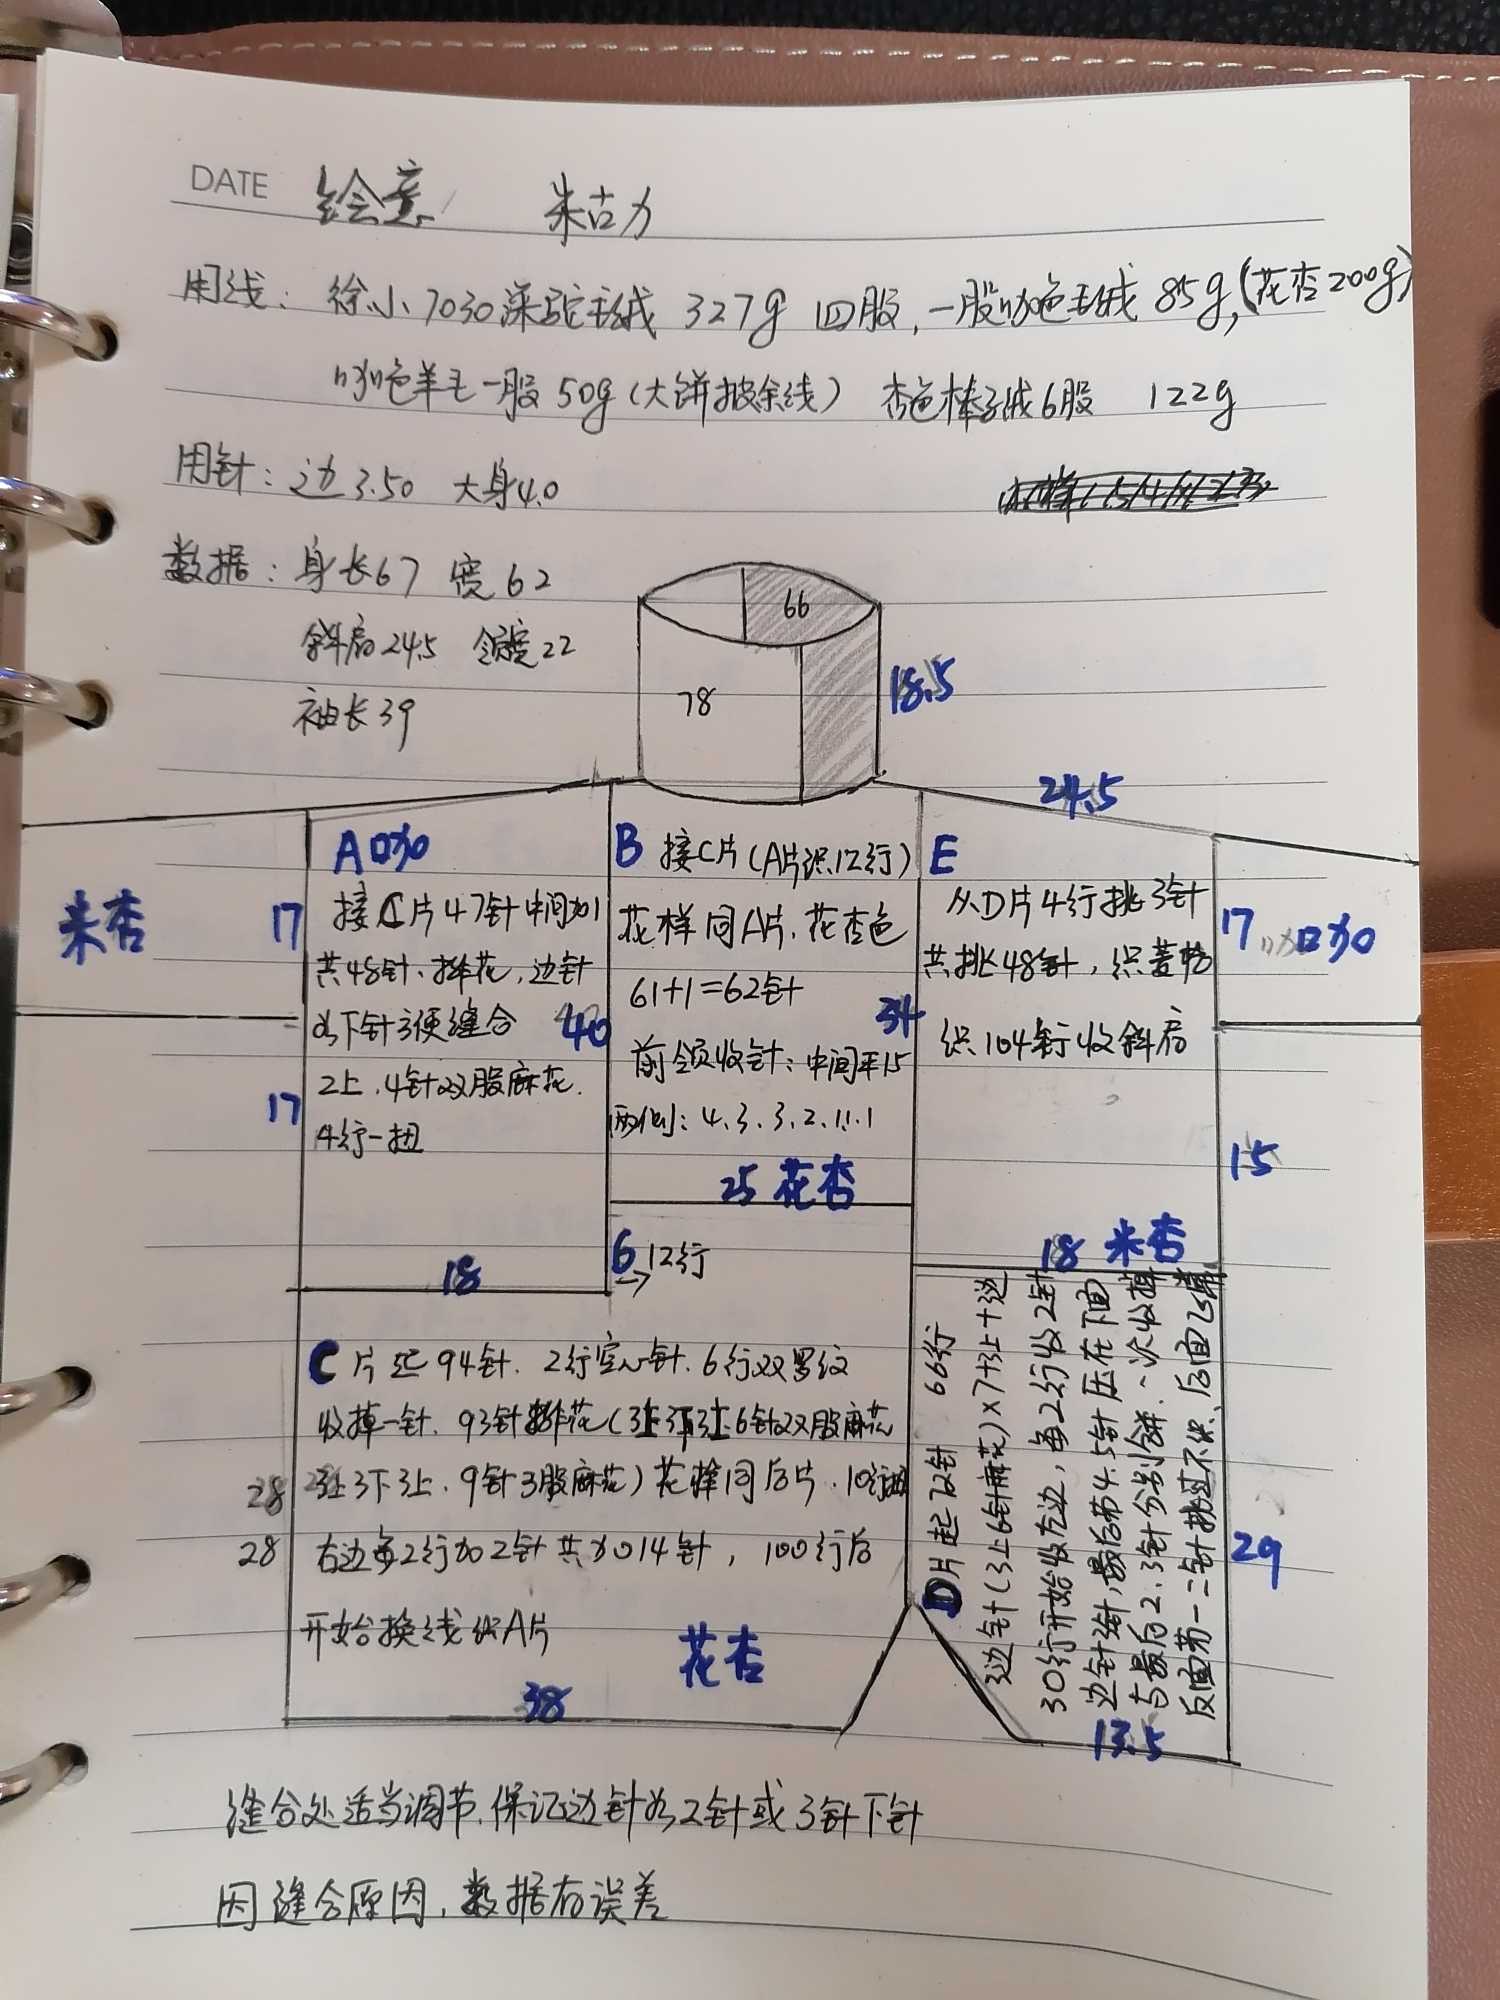 DATE 绘意 朱古力
用线：徐小7030深驼羊绒 327g 四股，一股咖色羊绒 85g，(花杏200g)
咖色羊毛一股50g（大饼披余线） 杏色棒子绒6股 122g
用针：边3.50 大身4.0
数据：身长67 宽62
斜肩24.5 领宽22
袖长39
66
78
18.5
24.5
A 咖
接C片47针中间加1
共48针、排花，边针
为下针方便缝合
2上、4针双股麻花
4行一扭
米杏
17
17
40
18
B 接C片（A片织12行）
花样同A片、花杏色
61+1=62针
前领收针：中间平15
两侧：4、3、3、2、1、1、1
34
25 花杏
6 12行
E
从D片4行挑3针
共挑48针，织萝卜
织104行收斜肩
17 咖
15
18 米杏
C 片起94针、2行空心针、6行双罗纹
收掉一针、93针排花（3上3下3上6针双股麻花
3上3下3上、9针3股麻花）花样同后片、10行扭
右边每2行加2针共加14针，100行后
开始换线织A片
花杏
28
28
38
D片起72针 66行
边针（3上6针麻花）×7+3上+边
30行开始收左边，每2行收2针
边针2针，最后第4、5针压在下面
与最后2、3针分别并、一次收掉
反面第一二针挑过不织、后面
29
13.5
缝合处适当调节、保证边针为2针或3针下针
因缝合原因，数据有误差